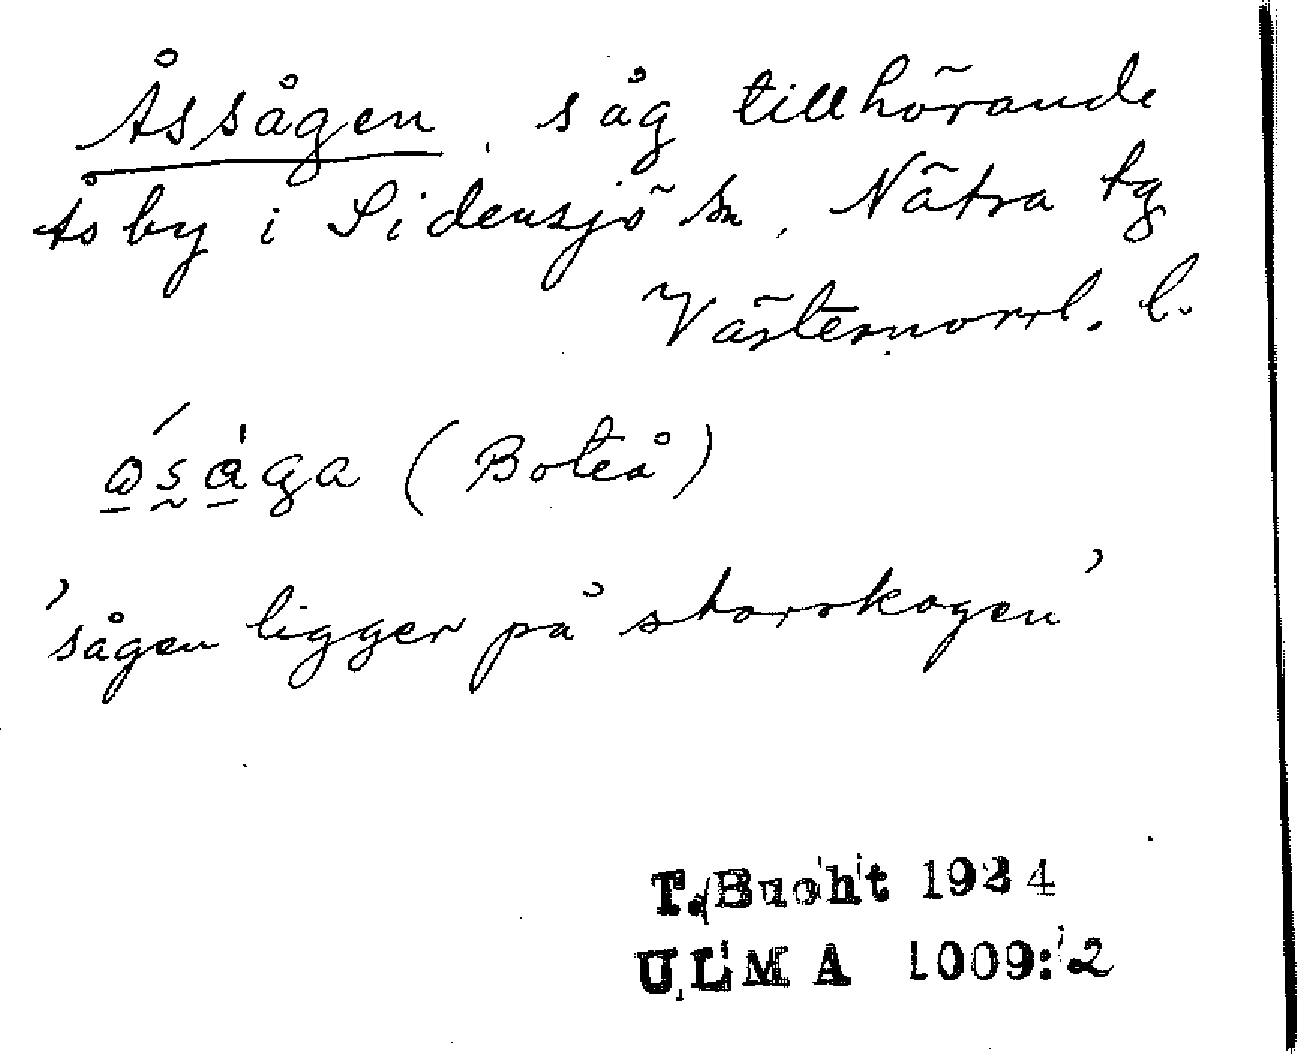 Åssågen, såg tillhörande
Ås by i Sidensjö sn, Nätra tg
Västernorrl. l.
(Boteå)
'sågen ligger på storskogen'
T. Bucht 1934
ULMA 1009:2